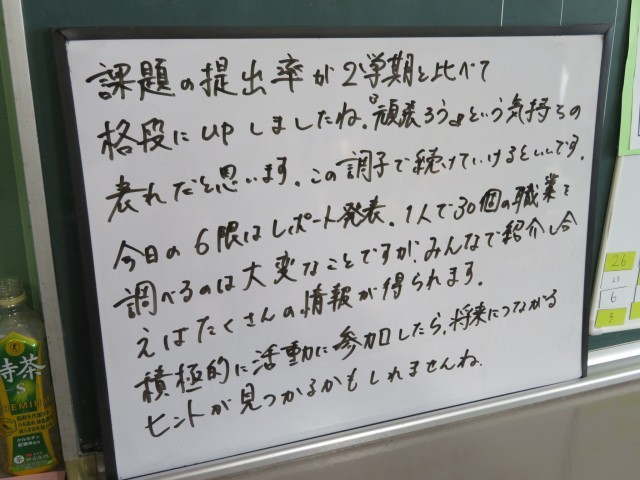 課題の提出率が2学期と比べて
格段にupしましたね。『頑張ろう』という気持ちの
表れだと思います。この調子で続けていけるといいです。
今日の6限はレポート発表。1人で30個の職業を
調べるのは大変なことですが、みんなで紹介し合
えばたくさんの情報が得られます。
積極的に活動に参加したら、将来につながる
ヒントが見つかるかもしれませんね。
特茶
S
PREMIUM
26
6